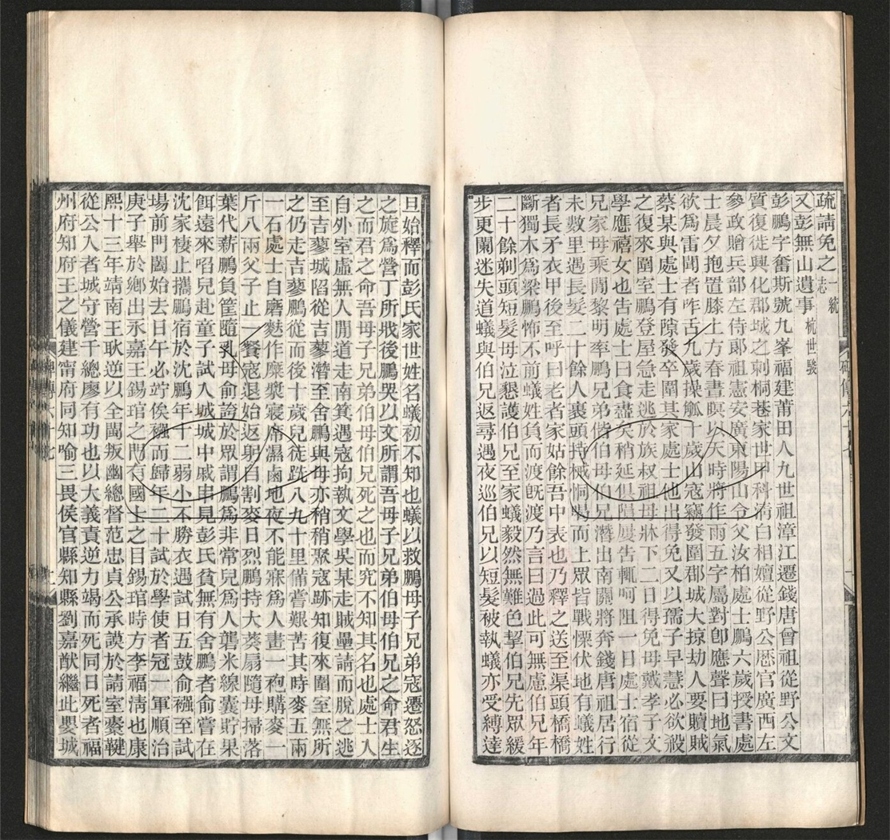 疏請免之一統志
又彭無山遺事杭世駿
彭鵬字奮斯號九峯福建莆田人九世祖漳江遷錢唐曾祖從野公文
質復徙興化郡城之刺桐巷家世甲科清白相嬗從野公歷官廣西左
參政贈兵部左侍郎祖憲安廣東陽山令父汝柏處士鵬六歲授書處
士晨夕抱置膝上方春晝暝以天時將作雨五字屬對即應聲曰地氣
欲為雷聞者咋舌九歲操觚十歲山寇竊發圍郡城大掠劫人要贖賊
蔡某與處士有隙發卒闖其家處士他出得免又以孺子早慧必欲殺
之復來圍室鵬登屋急走逃於族叔祖母牀下二日得免母戴孝子文
學應禧女也告處士曰食盡矣稍延俱隕屢告輒呵阻一日處士宿從
兄家母乘間黎明率鵬兄弟偕伯母兄潛出南關將奔錢唐祖居行
未數里遇長髮二十餘人裹頭持械恫喝而上眾皆戰慄伏地有蟻姓
者長矛衣甲後至呼曰老者家姑餘吾中表也乃釋之送至渠頭橋橋
斷獨木為梁鵬怖不前蟻姓負而渡既渡乃言曰過此可無慮伯兄年
二十餘剃頭短髮母泣懇護伯兄至家蟻毅然無難色挈伯兄先眾緩
步更闌迷失道蟻與伯兄返尋遇夜巡伯兄以短髮被執蟻亦受縛達
旦始釋而彭氏家世姓名蟻初不知也蟻以救鵬母子兄弟寇遷怒逐
之旋為營丁所戕後鵬哭以文所謂吾母子兄弟伯母伯兄之命君生
之而君之命吾母子兄弟伯母伯兄死之也而究不知其名也處士人
自外室虛無人閒道走南箕遇寇拘執文學吳某走賊壘請而脫之逃
至吉蓼城陷從吉蓼潛至舍鵬與母亦稍稍聚寇跡知復來圍室無所
之仍走吉蓼鵬從而後十歲兒徒跣八九十里備嘗艱苦其時麥五兩
一石處士自磨麩作糜糵寢席濕鹵地夜不能寐為人畫一袍購麥一
斤八兩父子止一餐寇退始返躬自割麥日烈鵬持大葵扇隨母掃落
葉代薪鵬負筐隨乳母俞誇於眾謂鵬為非常兒為人礱米線囊貯果
餌遠來啗兒赴童子試入城城中戚串見彭氏貧無有舍鵬者俞嘗在
沈家棲止攜鵬宿於沈鵬年十二弱小不勝衣遇試日五鼓俞襁至試
場前門闔始去日午必竚俟襁而歸年二十試於學使者冠一軍順治
庚子舉於鄉出永嘉王錫琯之門有國士之目錫琯時方李福清也康
熙十三年靖南王耿逆以全閩叛幽總督范忠貞公承謨於請室橐鞬
從公入者城守營千總廖有功也以大義責逆力竭而死同日死者福
州府知府王之儀建甯府同知喻三畏侯官縣知縣劉嘉猷繼此嬰城